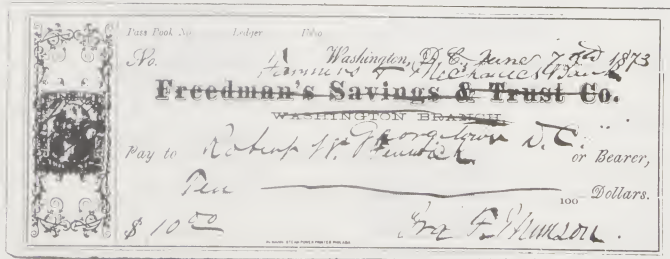 Pass Book No. Ledger Folio
No. Washington, D.C. June 1873
Farmers & Mechanics Bank
Freedman's Savings & Trust Co.
WASHINGTON BRANCH
Georgetown D.C.
Pay to Robert W. Fenwick or Bearer,
Ten 100 Dollars.
$ 10 00 F. Munson.